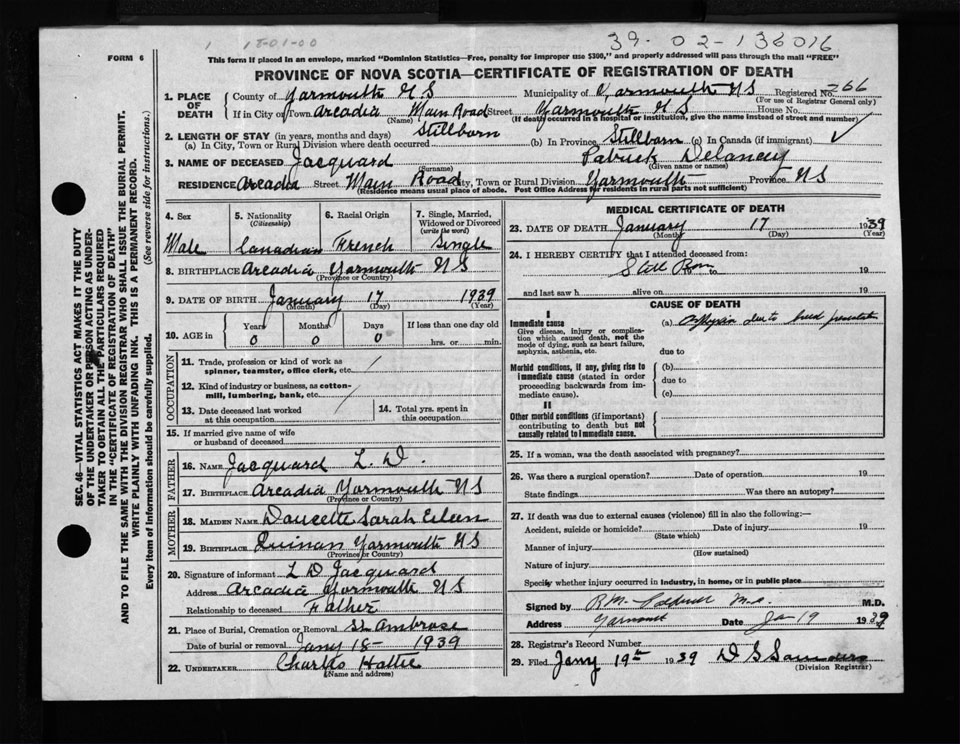 1 18-01-00
39-02-136016
FORM 6
This form if placed in an envelope, marked "Dominion Statistics—Free, penalty for improper use $300," and properly addressed will pass through the mail "FREE"
PROVINCE OF NOVA SCOTIA—CERTIFICATE OF REGISTRATION OF DEATH
1. PLACE OF DEATH { County of Yarmouth N S Municipality of Yarmouth N S Registered No. 266
(For use of Registrar General only)
If in City or Town Arcadia Main Road Street Yarmouth N S House No.
(Name) (If death occurred in a hospital or institution, give the name instead of street and number)
2. LENGTH OF STAY (in years, months and days) Stillborn
(a) In City, Town or Rural Division where death occurred (b) In Province Stillborn (c) In Canada (if immigrant)
3. NAME OF DECEASED Jacquard Patrick Delancey
(Surname) (Given name or names)
RESIDENCE Arcadia Street Main Road City, Town or Rural Division Yarmouth Province NS
(Residence means usual place of abode. Post Office Address for residents in rural parts not sufficient)
SEC. 46—VITAL STATISTICS ACT MAKES IT THE DUTY
OF THE UNDERTAKER OR PERSON ACTING AS UNDER-
TAKER TO OBTAIN ALL THE PARTICULARS REQUIRED
IN THE "CERTIFICATE OF REGISTRATION OF DEATH"
AND TO FILE THE SAME WITH THE DIVISION REGISTRAR WHO SHALL ISSUE THE BURIAL PERMIT.
WRITE PLAINLY WITH UNFADING INK. THIS IS A PERMANENT RECORD.
Every item of information should be carefully supplied. (See reverse side for instructions.)
4. Sex 5. Nationality 6. Racial Origin 7. Single, Married,
(Citizenship) Widowed or Divorced
(write the word)
Male Canadian French Single
8. BIRTHPLACE Arcadia Yarmouth N S
(Province or Country)
9. DATE OF BIRTH January 17 1939
(Month) (Day) (Year)
10. AGE in { Years Months Days If less than one day old
0 0 0 hrs. or min.
OCCUPATION
11. Trade, profession or kind of work as
spinner, teamster, office clerk, etc. /
12. Kind of industry or business, as cotton-
mill, lumbering, bank, etc. /
13. Date deceased last worked
at this occupation
14. Total yrs. spent in
this occupation
15. If married give name of wife
or husband of deceased
FATHER
16. NAME Jacquard L. D.
17. BIRTHPLACE Arcadia Yarmouth N S
(Province or Country)
MOTHER
18. MAIDEN NAME Doucette Sarah Eileen
19. BIRTHPLACE Quinan Yarmouth N S
(Province or Country)
20. Signature of informant L D Jacquard
Address Arcadia Yarmouth N S
Relationship to deceased Father
21. Place of Burial, Cremation or Removal St Ambrose
Date of burial or removal Jany 18- 1939
22. UNDERTAKER Charles Hattie
(Name and address)
MEDICAL CERTIFICATE OF DEATH
23. DATE OF DEATH January 17 1939
(Month) (Day) (Year)
24. I HEREBY CERTIFY that I attended deceased from:
Still Born to 19
and last saw h alive on 19
CAUSE OF DEATH
I
Immediate cause
Give disease, injury or complica-
tion which caused death, not the
mode of dying, such as heart failure,
asphyxia, asthenia, etc.
(a) Asphyxia due to breech presentation
due to
Morbid conditions, if any, giving rise to
immediate cause (stated in order
proceeding backwards from im-
mediate cause).
(b)
due to
(c)
II
Other morbid conditions (if important)
contributing to death but not
causally related to immediate cause.
25. If a woman, was the death associated with pregnancy?
26. Was there a surgical operation? Date of operation 19
State findings Was there an autopsy?
27. If death was due to external causes (violence) fill in also the following:—
Accident, suicide or homicide? Date of injury 19
(State which)
Manner of injury
(How sustained)
Nature of injury
Specify whether injury occurred in industry, in home, or in public place
Signed by R M Caldwell M.D. M.D.
Address Yarmouth Date Jan 19 1939
28. Registrar's Record Number
29. Filed Jany 19th 1939 D S Saunders
(Division Registrar)